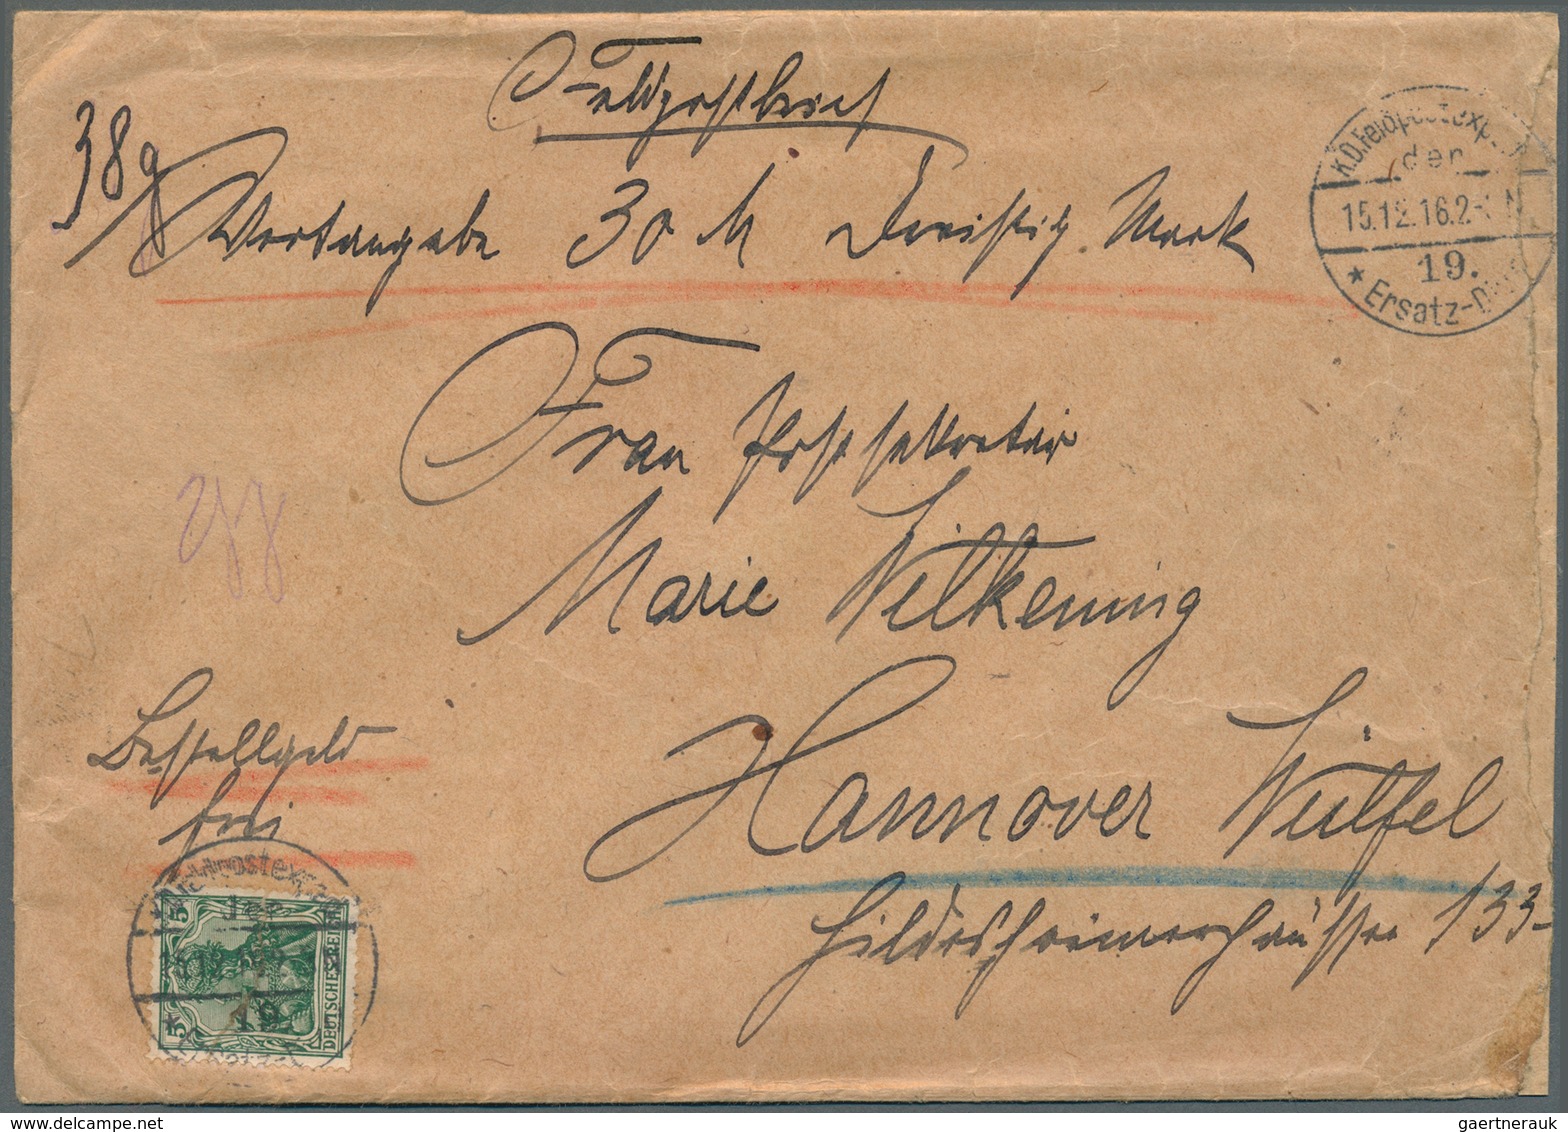 Feldpostbrief
38 g
Wertangabe 30 M Dreißig Mark
K.D.Feldpostexp.
der
15.12.16.2-3 N
19.
* Ersatz-Div.
Frau Postsekretär
Marie Wilkening
Bestellgeld
frei
Hannover Wülfel
Hildesheimerchaussee 133
5 5
DEUTSCHES REICH
der
19
gaertnerauk